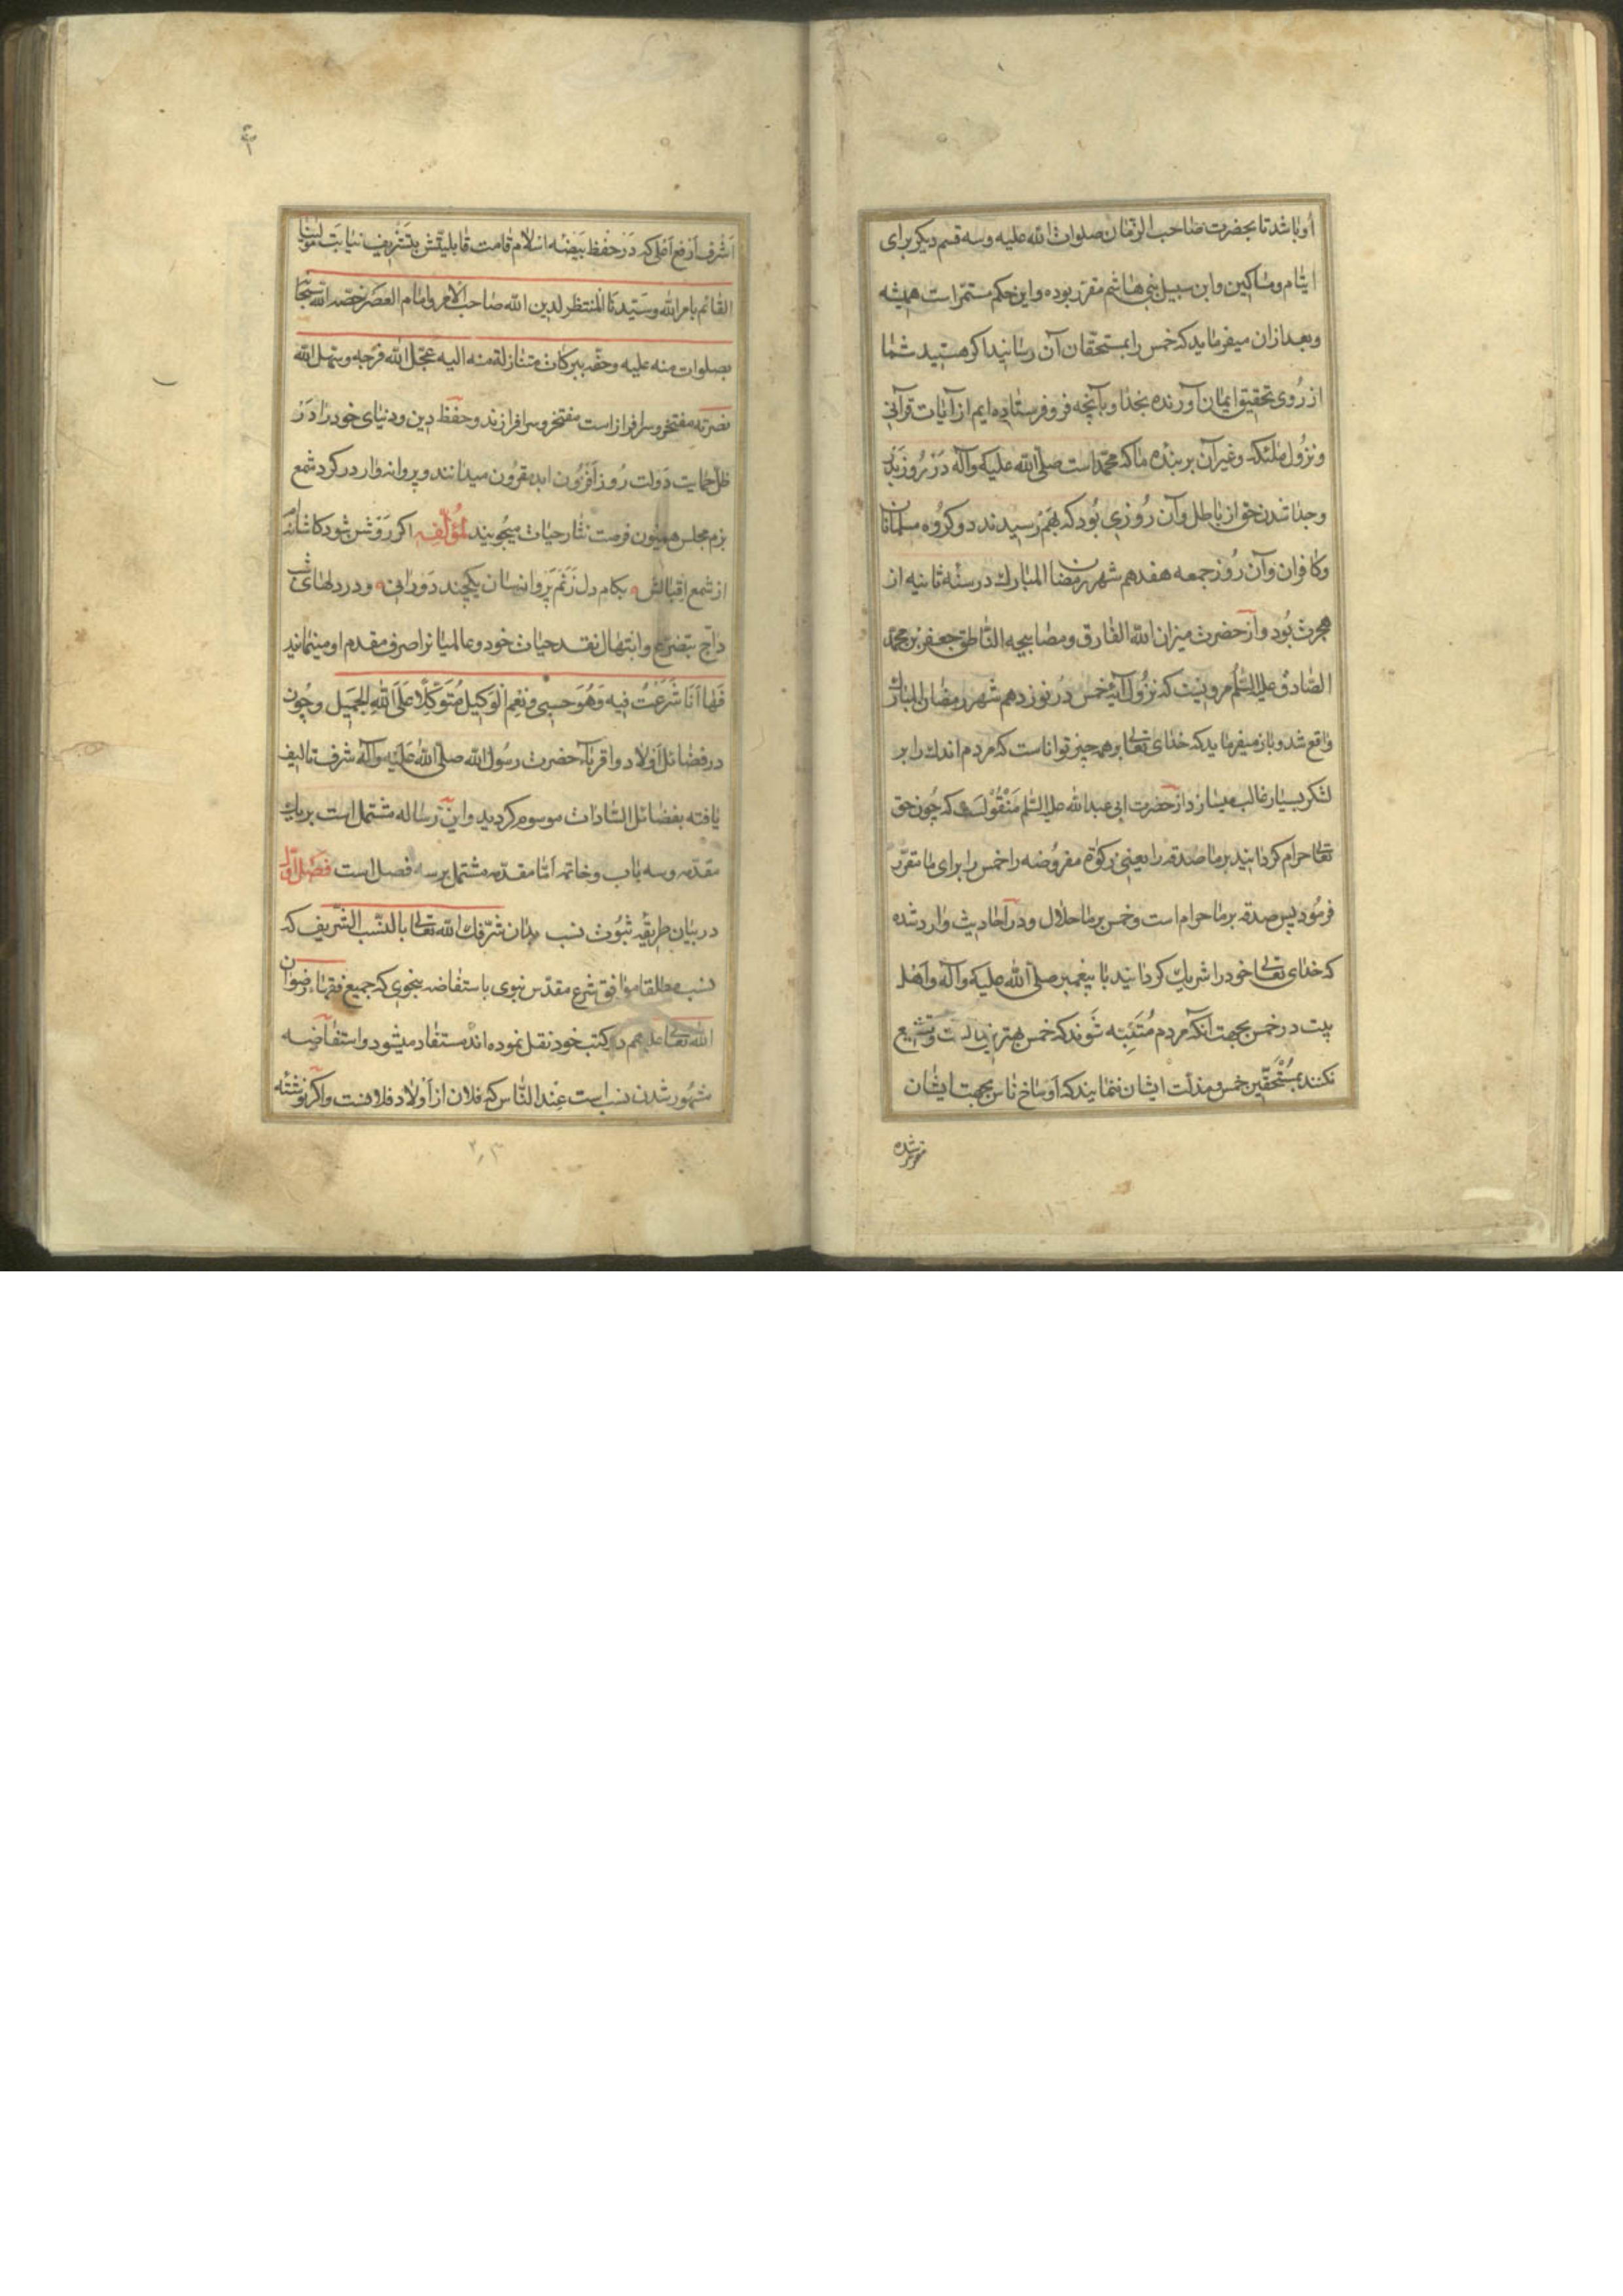 او باشد تا بحضرت صاحب الزمان صلوات الله علیه وسه قسم دیکر برای
ایتام ومساکین وابن سبیل بنی هاشم مقرر بوده واین حکم مستمر است همیشه
وبعد ازان میفرماید که خمس را بمستحقان آن رسانید اکر هستید شما
از روی تحقیق ایمان آورنده بخدا وبآنچه فرو فرستاده ایم از آیات قرآنی
ونزول ملئکه وغیر آن بر بنده ما که محمد است صلی الله علیه وآله در روز بدر
وجدا شدن حق از باطل وآن روزی بود که بهم رسیدند دو کروه مسلمانان
وکافران وآن روز جمعه هفدهم شهر رمضان المبارک در سنه ثانیه از
هجرت بود واز حضرت میزان الله الفارق ومصابیحه الناطق جعفر بن محمد
الصادق علیه السلم مرویست که نزول آیه خمس در نوزدهم شهر رمضان المبارک
واقع شد وباز میفرماید که خدای تعالی بر همه چیز تواناست که مردم اندک را بر
لشکر بسیار غالب میسازد از حضرت ابی عبد الله علیه السلم منقولست که چون حق
تعالی حرام کردانید بر ما صدقه را یعنی زکوة مفروضه را خمس را برای ما مقرر
فرمود پس صدقه بر ما حرام است وخمس بر ما حلال ودر احادیث وارد شده
که خدای تعالی خود را شریک کردانید با پیغمبر صلی الله علیه وآله واهل
بیت در خمس بجهت آنکه مردم متنبه شوند که خمس بهترین وتشنیع
نکنند بمستحقین خمس ومذلت ایشان ننمایند که اوساخ ناس بجهت ایشان
مقرر شده
اشرف ارفع اعلی که در حفظ بیضه اسلام قامت قابلیتش بتشریف نیابت مولینا
القائم بامر الله وسیدنا المنتظر لدین الله صاحب الامر وامام العصر خصه الله سبحانه
بصلوات منه علیه وحفه ببرکات متنازلة منه الیه عجل الله فرجه وسهل الله
نصرته مفتخر وسرافراز است مفتخر وسرافرازند وحفظ دین ودنیای خود را در
ظل حمایت دولت روز افزون ابد مقرون میدانند وپروانه وار در کرد شمع
بزم مجلس همیون فرصت نثار حیات میجویند لمؤلفه اکر روشن شود کاشانه ام
از شمع اقبالش بکام دل زنم پروانه سان یکچند دورانی ودر دلهای شب
داج بتضرع وابتهال نقد حیات خود وعالمیانرا صرف مقدم او مینمایند
فها انا شرعت فیه وهو حسبی ونعم الوکیل متوکلا علی الله الجمیل وچون
در فضائل اولاد واقرباء حضرت رسول الله صلی الله علیه وآله شرف تالیف
یافته بفضائل السادات موسوم کردید واین رساله مشتمل است بر یک
مقدمه وسه باب وخاتمه اما مقدمه مشتمل بر سه فصل است فصل اول
در بیان طریقه ثبوت نسب بدان شرفک الله تعالی بالنسب الشریف که
نسب مطلقا موافق شرع مقدس نبوی باستفاضه بنحوی که جمیع فقهاء رضوان
الله تعالی علیهم در کتب خود نقل نموده اند مستفاد میشود واستفاضه
مشهور شدن نسب است عند الناس که فلان از اولاد فلانست واکر نوشته